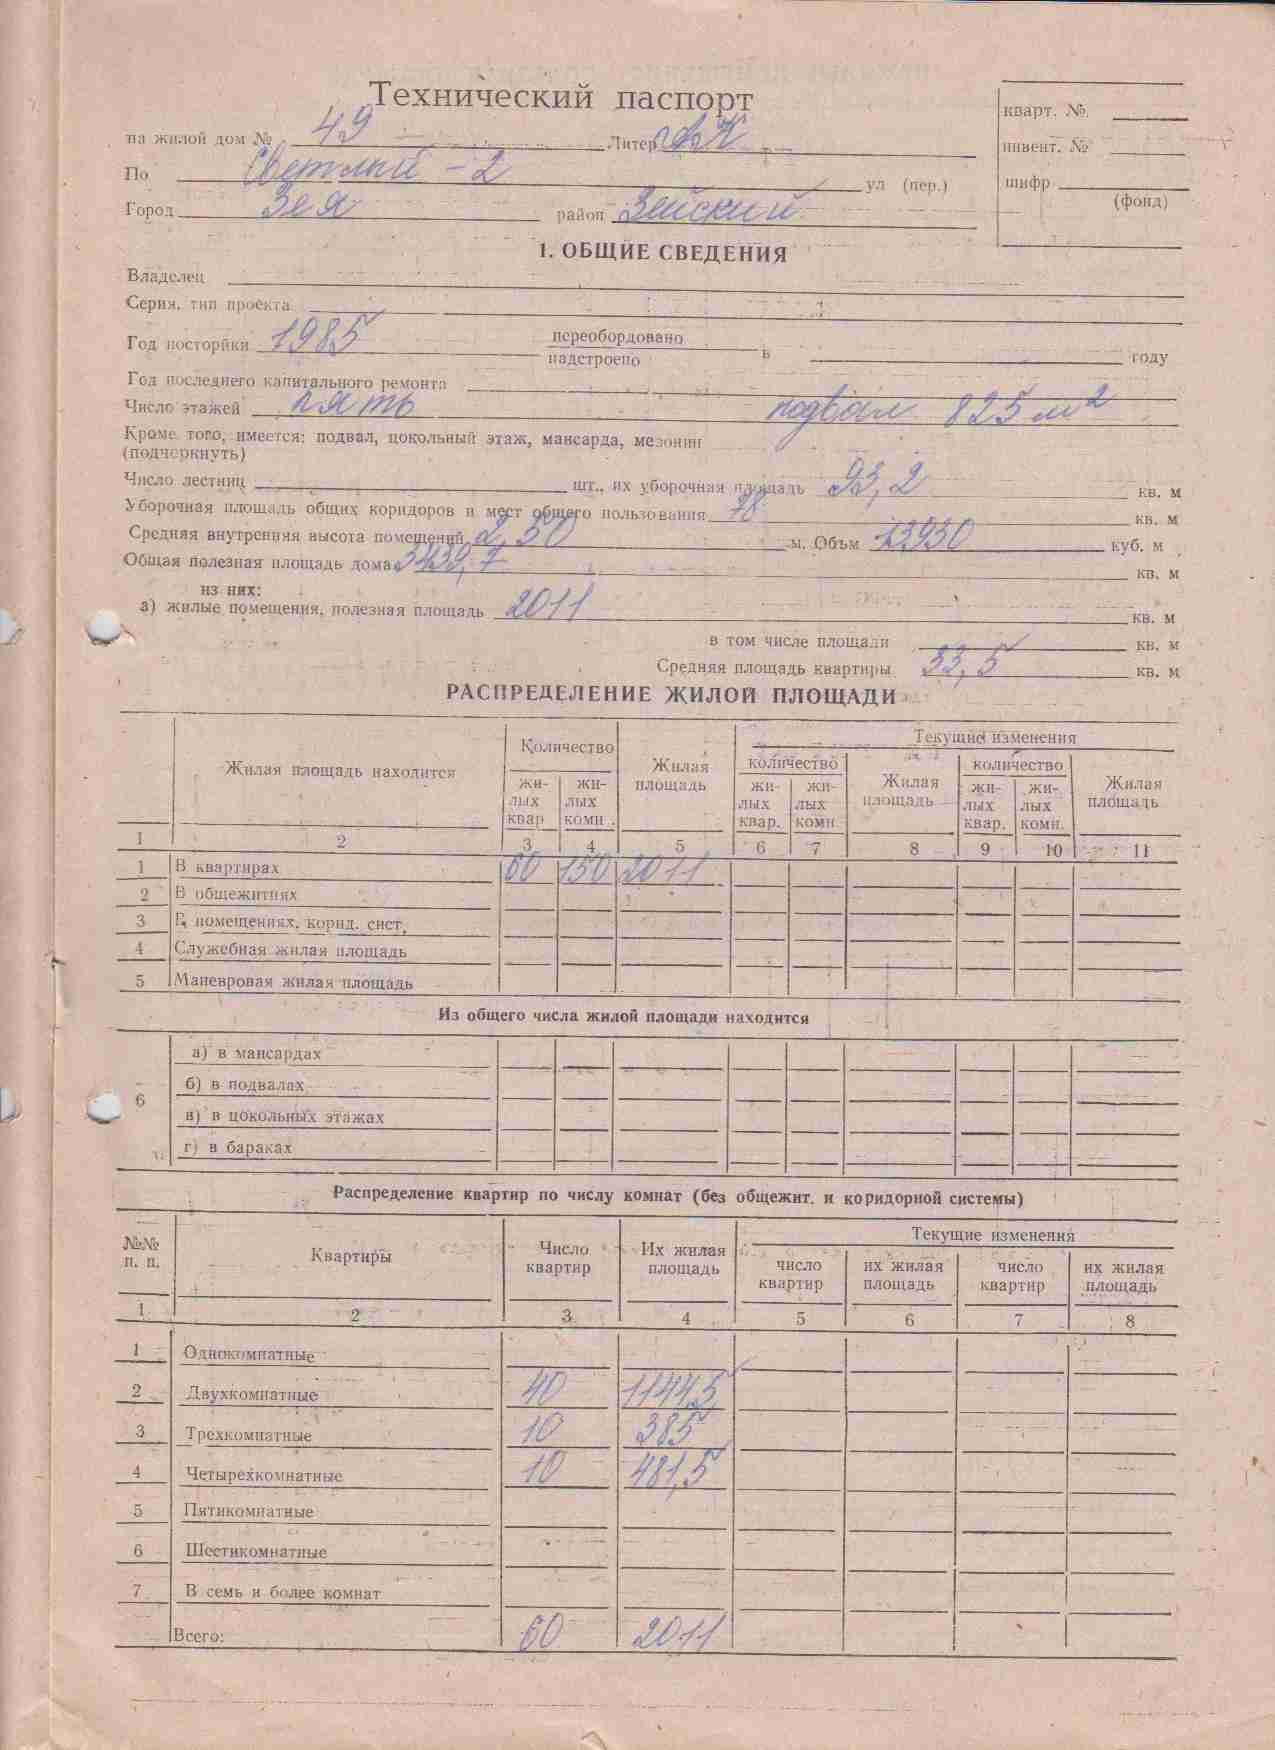 Технический паспорт
на жилой дом № 49 Литер
По Светлый - 2 ул (пер.)
Город Зея район Зейский
кварт. №
инвент. №
шифр
(фонд)
I. ОБЩИЕ СВЕДЕНИЯ
Владелец
Серия, тип проекта
Год посторйки 1985 переобордовано
надстроено в году
Год последнего капитального ремонта
Число этажей пять подвал 825 м2
Кроме того, имеется: подвал, цокольный этаж, мансарда, мезонин
(подчеркнуть)
Число лестниц шт., их уборочная площадь 93,2 кв. м
Уборочная площадь общих коридоров и мест общего пользования 78 кв. м
Средняя внутренняя высота помещений 2,50 м. Объм 13930 куб. м
Общая полезная площадь дома 3439,7 кв. м
из них:
а) жилые помещения, полезная площадь 2011 кв. м
в том числе площади кв. м
Средняя площадь квартиры 33,5 кв. м
РАСПРЕДЕЛЕНИЕ ЖИЛОЙ ПЛОЩАДИ
Жилая площадь находится Количество Жилая площадь Текущие изменения
жилых квар жилых комн. количество Жилая площадь количество Жилая площадь
жилых квар. жилых комн. жилых квар. жилых комн.
1 2 3 4 5 6 7 8 9 10 11
1 В квартирах 60 150 2011
2 В общежитиях
3 В помещениях, корид. сист.
4 Служебная жилая площадь
5 Маневровая жилая площадь
Из общего числа жилой площади находится
6 а) в мансардах
б) в подвалах
в) в цокольных этажах
г) в бараках
Распределение квартир по числу комнат (без общежит. и коридорной системы)
№№ п. п. Квартиры Число квартир Их жилая площадь Текущие изменения
число квартир их жилая площадь число квартир их жилая площадь
1 2 3 4 5 6 7 8
1 Однокомнатные
2 Двухкомнатные 40 1144,5
3 Трехкомнатные 10 385
4 Четырехкомнатные 10 481,5
5 Пятикомнатные
6 Шестикомнатные
7 В семь и более комнат
Всего: 60 2011